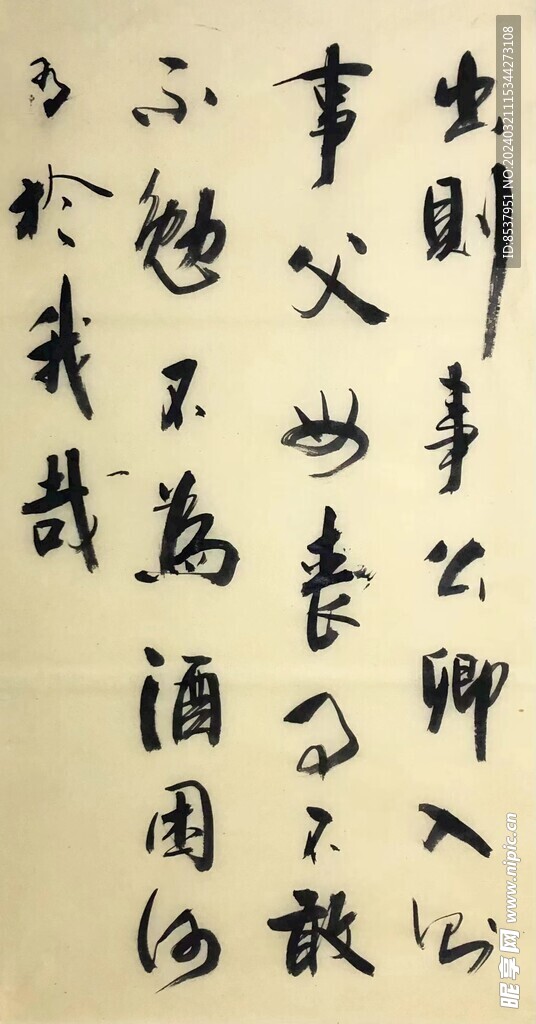 出則事公卿入則
事父母喪事不敢
不勉不為酒困何
有於我哉
ID:8537951 NO:20240321115344273108
昵享网 www.nipic.cn